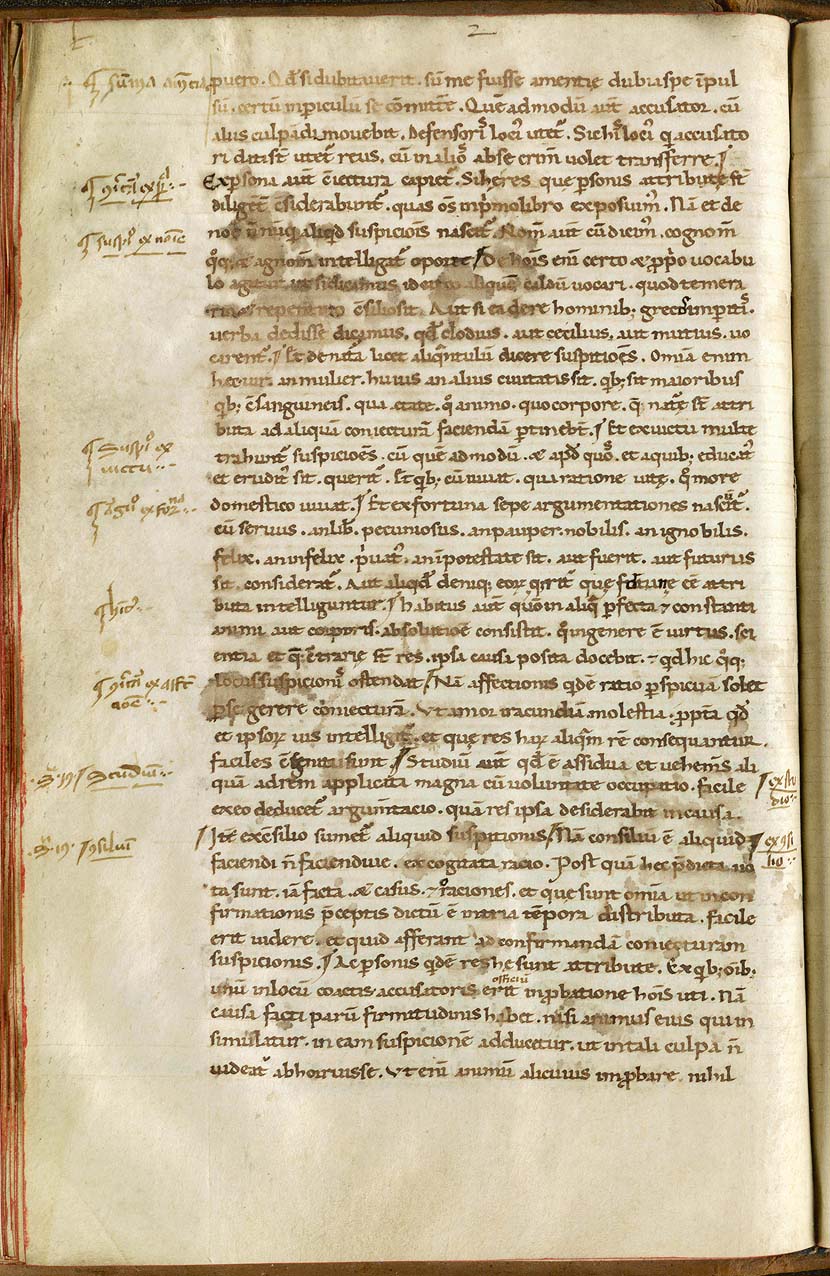 2
puero. Qđ si dubitauerit. sūme fuisse amentię dubia spe īpul
sū. certū in piculū se cōmittē̃. Quēadmodū aut̃ accusator. cū
aliis culpādi mouebit̃. defensorĩ loci utet̃. Sic hĩ loci q̃ accusato
ri dati st̃ utet̃ reus. cū in aliõ ab se crim̃ uolet transferre.
Ex psona aut̃ c̃iectura capiet̃. Si hę res que psonis attributę st̃
diligent̃ c̃siderabunt̃. quas om̃s in p̃mo libro exposuim̃. Nā et de
noīe ñ nunq̃ aliqđ suspiciois̃ nascit̃. Nom̃ aut̃ cū dicim̃. cognom̃
q̊q; & agnom̃ intelligat̃ oportet. De hois̃ eñi certo & pprio uocabu
lo agitur ut si dicamus idcirco aliquem caldū uocari. quod temera
rio & repentino c̃silio sit. Aut si ea de re hominib; grecis imperitĩ.
uerba dedisse dicamus. qđ clodius. aut cecilius. aut mutius. uo
carent̃. Et de nat̃a licet aliq̃ntulū dicere suspitiões. Omĩa enim
hec uir an mulier. huius an alius ciuitatis sit. qb; sit maioribus
qb; c̃sanguineis. qua etate. q̊ animo. quo corpore. q̃ nat̃ę st̃ attri
buta ad aliquā coniecturā faciendā ptinebt̃. Et ex uictu multe
trahunt̃ suspiciões. cū quēadmodū. & apđ quõ. et a quib; educat̃
et erudit̃ sit. querit̃. Et qb; cū uiuat. qua ratione uitę. q̊ more
domestico uiuat. Et ex fortuna sepe argumentationes nascũt̃.
cū seruus. an lib̃. pecuniosus. an pauper. nobilis. an ignobilis.
felix. an infelix. p̃uat̃. an ī potestate sit. aut fuerit. aut futurus
sit. considerat̃. Aut aliqđ deniq; eoꝝ q̃rit̃ que fortune eē attri
buta intelliguntur. habitus aut̃ qm̃ in aliq̃ pfecta & constanti
animi aut corporis. absolutioē consistit. q̊ in genere ē uirtus. sci
entia et q̃ c̃trarię st̃ res. ipsa causa posita docebit. & qđ hic q̊q;
locus suspicionĩ ostendat. Nā affectionis qđē ratio pspicua solet
p se gerere coniecturā. Vt amor iracundiā molestia. ppt̃a qđ
et ipsoꝝ uis intelligit̃. et quę res haꝝ aliq̃m rē consequantur.
faciles c̃gnitu sunt. Studiū aut̃ qđ ē assidua et uehem̃s ali
quā ad rem applicita magna cū uoluntate occupatio. facile
ex eo deducet̃ argum̃tacio. quā res ipsa desiderabit in causa.
Itē ex c̃silio sumet̃ aliquid suspitionis. Nā consiliũ ē aliquid
faciendi ñ faciendiue. excogitata racio. Post quā hec p̃dicta uo
ta sunt. iā facta. & casus. & oraciones. et que sunt omĩa ut in con
firmationis p̃ceptis dictū ē in tria tēpora distributa. facile
erit uidere. et quid afferant ad confirmandā coniecturam
suspicionis. Ac psonis qđē res hę sunt attribute. Ex qb; oīb;
unū in locū coactis accusatoris officiũ erit inpbatione hois̃ uti. Nā
causa facti parū firmitudinis habet. nisi animus eius qui in
simulatur. in eam suspicionē adducetur. ut in tali culpa ñ
uideat̃ abhorruisse. Vt eñi animū alicuius inpbare nihil
suspĩ ex noīe
Suspĩ ex
uictu